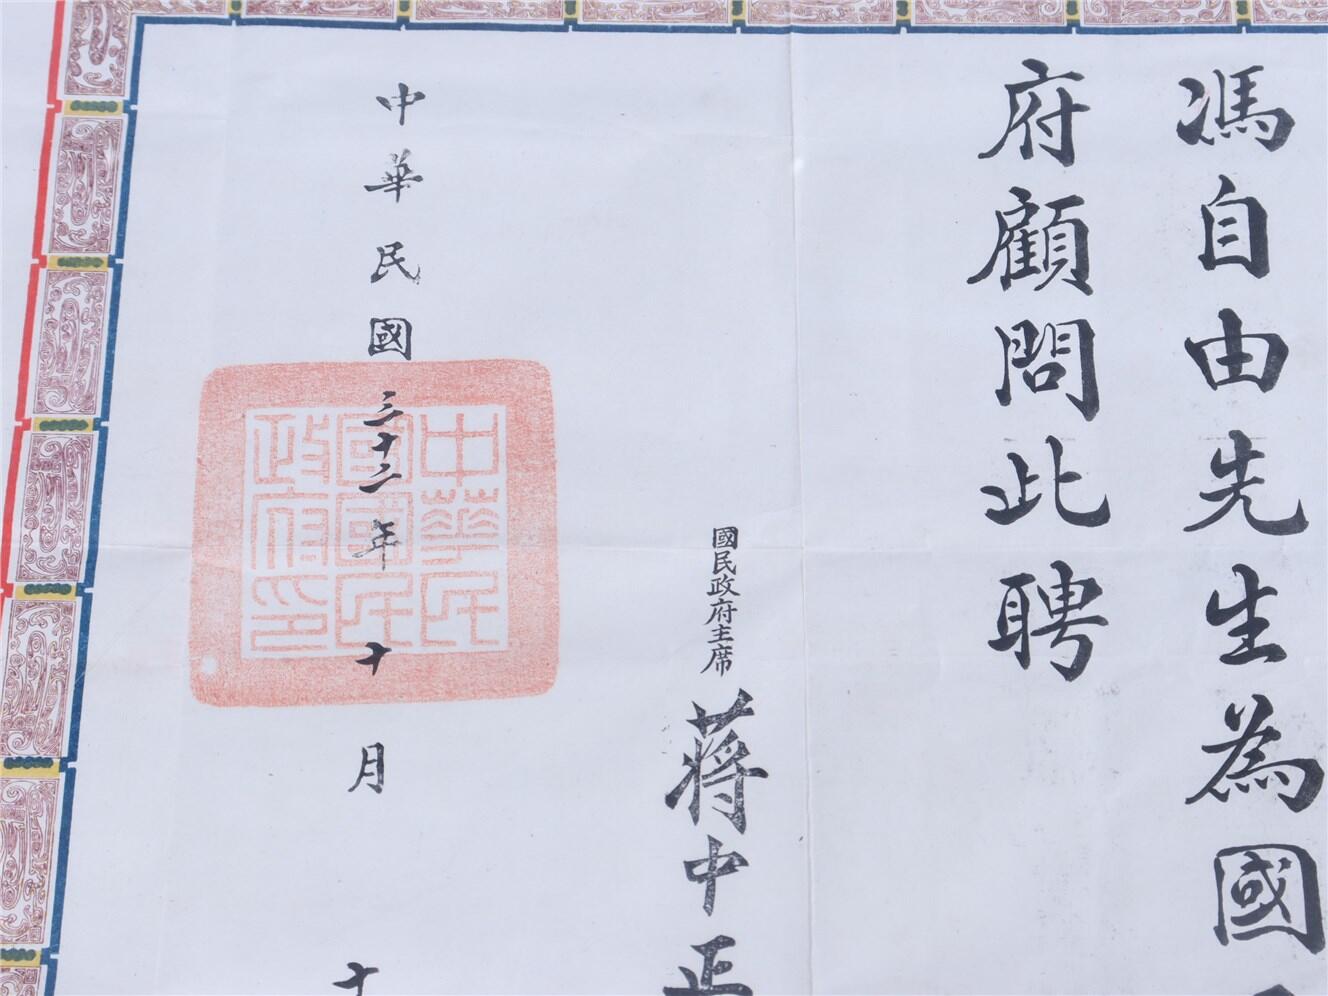 馮自由先生為國
府顧問此聘
國民政府主席
蔣中正
中華民國三十二年十月十
中華民
國國民
政府印